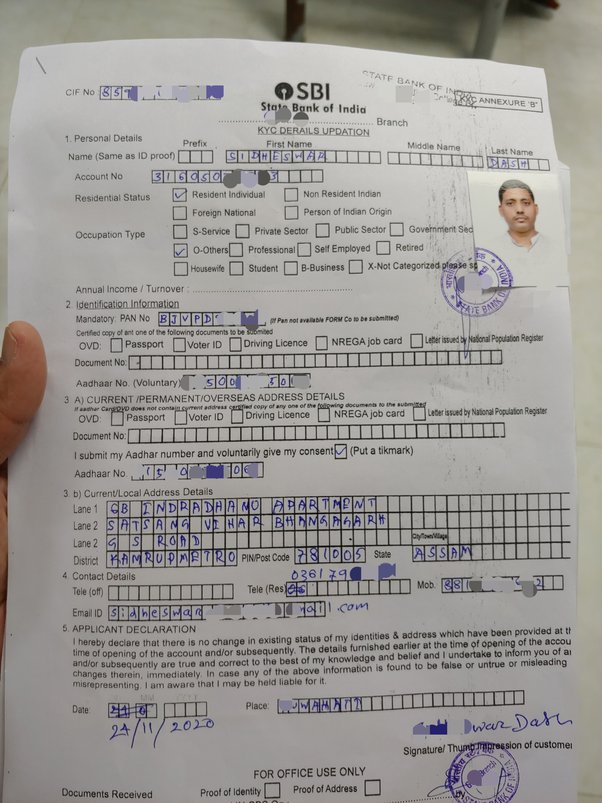 STATE BANK OF IN
CIF No 859
SBI
State Bank of India
KYC ANNEXURE 'B'
Branch
KYC DERAILS UPDATION
1. Personal Details
Prefix First Name Middle Name Last Name
Name (Same as ID proof) SIDHESWAR DASH
Account No 316050 3
Residential Status ✓ Resident Individual Non Resident Indian
Foreign National Person of Indian Origin
Occupation Type S-Service Private Sector Public Sector Government Sec
✓ O-Others Professional Self Employed Retired
Housewife Student B-Business X-Not Categorized please s
Annual Income / Turnover :
2. Identification Information
Mandatory. PAN No BJVPD (If Pan not available FORM Co to be submitted)
Certified copy of ant one of the following documents to be submitted
OVD: Passport Voter ID Driving Licence NREGA job card Letter issued by National Population Register
Document No:
Aadhaar No. (Voluntary) 500 30
3 A) CURRENT /PERMANENT/OVERSEAS ADDRESS DETAILS
If aadhar Card/OVD does not contain current address certified copy of any one of the following documents to the submitted
OVD: Passport Voter ID Driving Licence NREGA job card Letter issued by National Population Register
Document No:
I submit my Aadhar number and voluntarily give my consent ✓ (Put a tikmark)
Aadhaar No. 150 0
3 b) Current/Local Address Details
Lane 1 GB INDRADHANU APARTMENT
Lane 2 SATSANG VIHAR BHANGAGARH
Lane 2 G S ROAD City/Town/Village
District KAMRUPMETRO PIN/Post Code 781005 State ASSAM
4. Contact Details 036179
Tele (off) Tele (Res) Mob. 88 2
Email ID sidheswar mail.com
5. APPLICANT DECLARATION
I hereby declare that there is no change in existing status of my identities & address which have been provided at th
time of opening of the account and/or subsequently. The details furnished earlier at the time of opening of the accou
and/or subsequently are true and correct to the best of my knowledge and belief and I undertake to inform you of an
changes therein, immediately. In case any of the above information is found to be false or untrue or misleading
misrepresenting. I am aware that I may be held liable for it.
Date: Place: UWAHATI
24/11/2020
war Dash
Signature/ Thumb Impression of customer
FOR OFFICE USE ONLY
Documents Received Proof of Identity Proof of Address